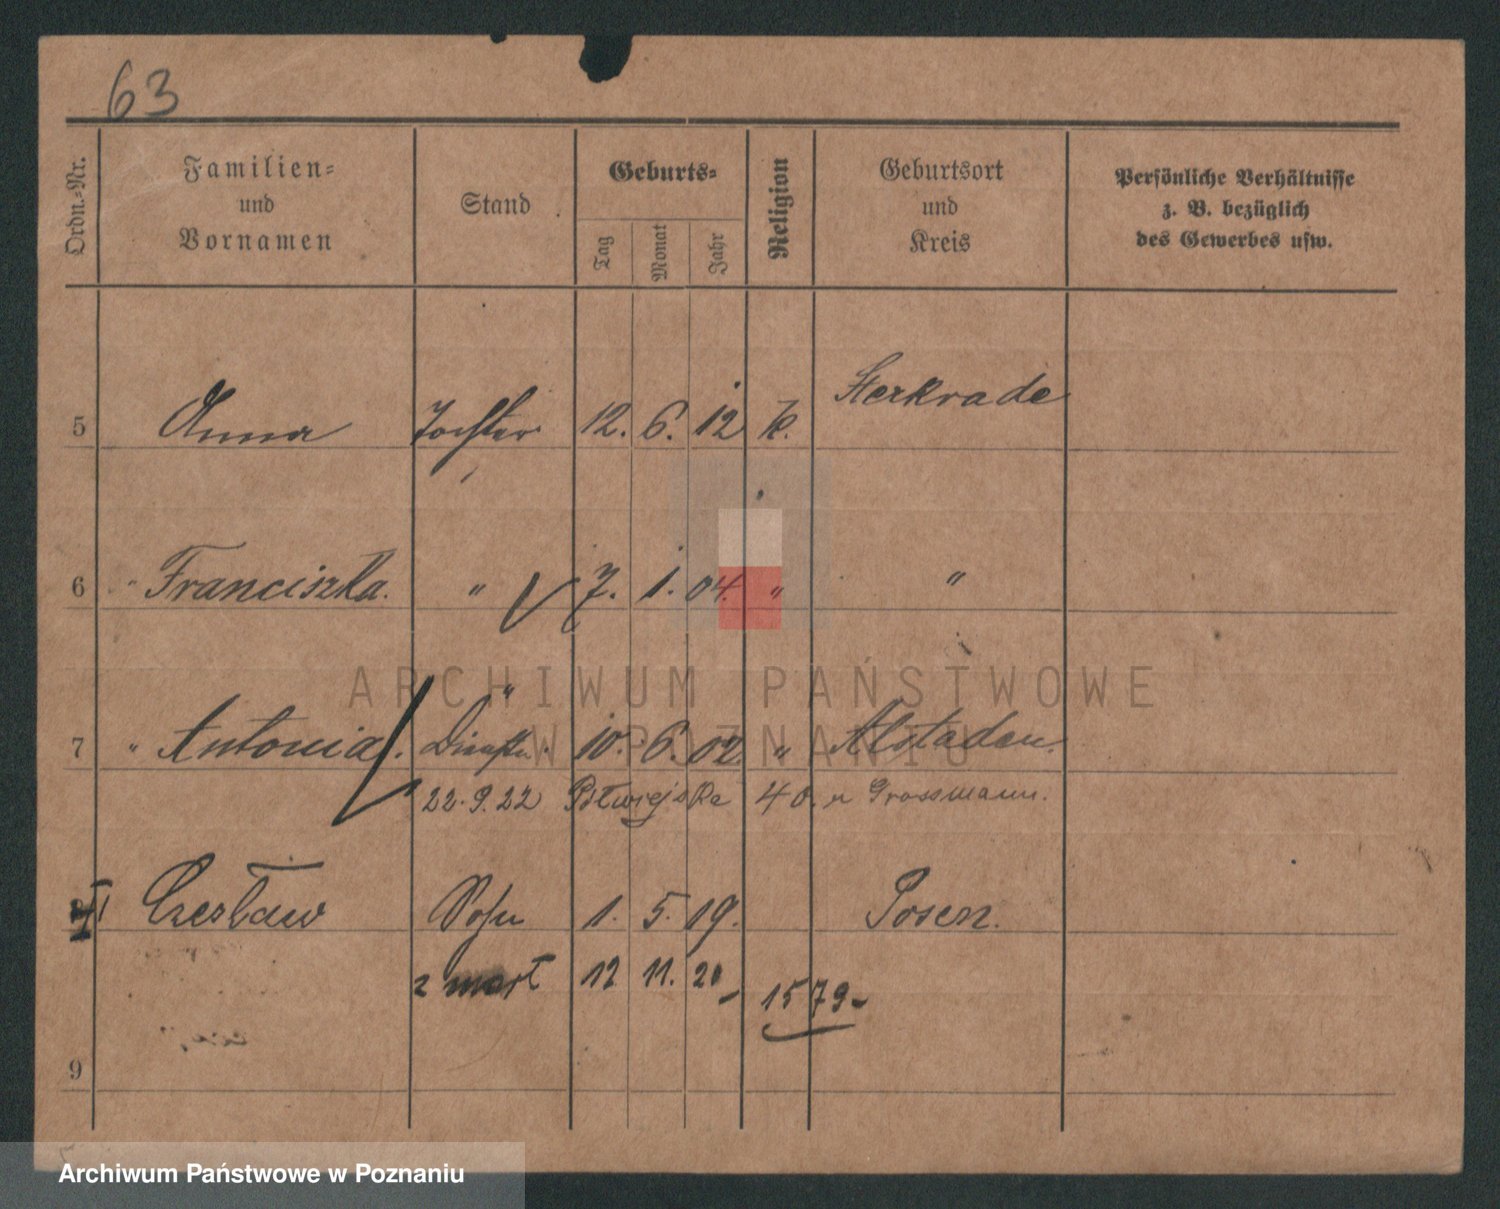 63
Ordn.-Nr.
Familien-
und
Vornamen
Stand
Geburts-
Tag
Monat
Jahr
Religion
Geburtsort
und
Kreis
Persönliche Verhältnisse
z. B. bezüglich
des Gewerbes usw.
5 Anna Tochter 12. 6. 12 K. Sterkrade
6 " Franciszka. " 7. 1. 04. " "
"
7 " Antonia. 10. 6. 02. " Alstaden.
22.9.22 Półwiejska 40. Grossmann.
Czesław Sohn 1. 5. 19. Posen.
12 11. 20 1579
9
ARCHIWUM PAŃSTWOWE
W POZNANIU
Archiwum Państwowe w Poznaniu